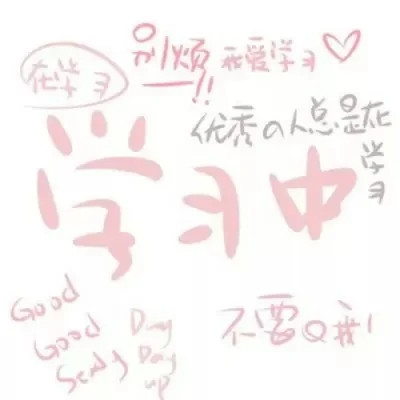 别烦——!!
我爱学习♡
在学习
优秀の人总是在学习
学习中
Good
Good
Study
Day
Day
up
不要Q我!